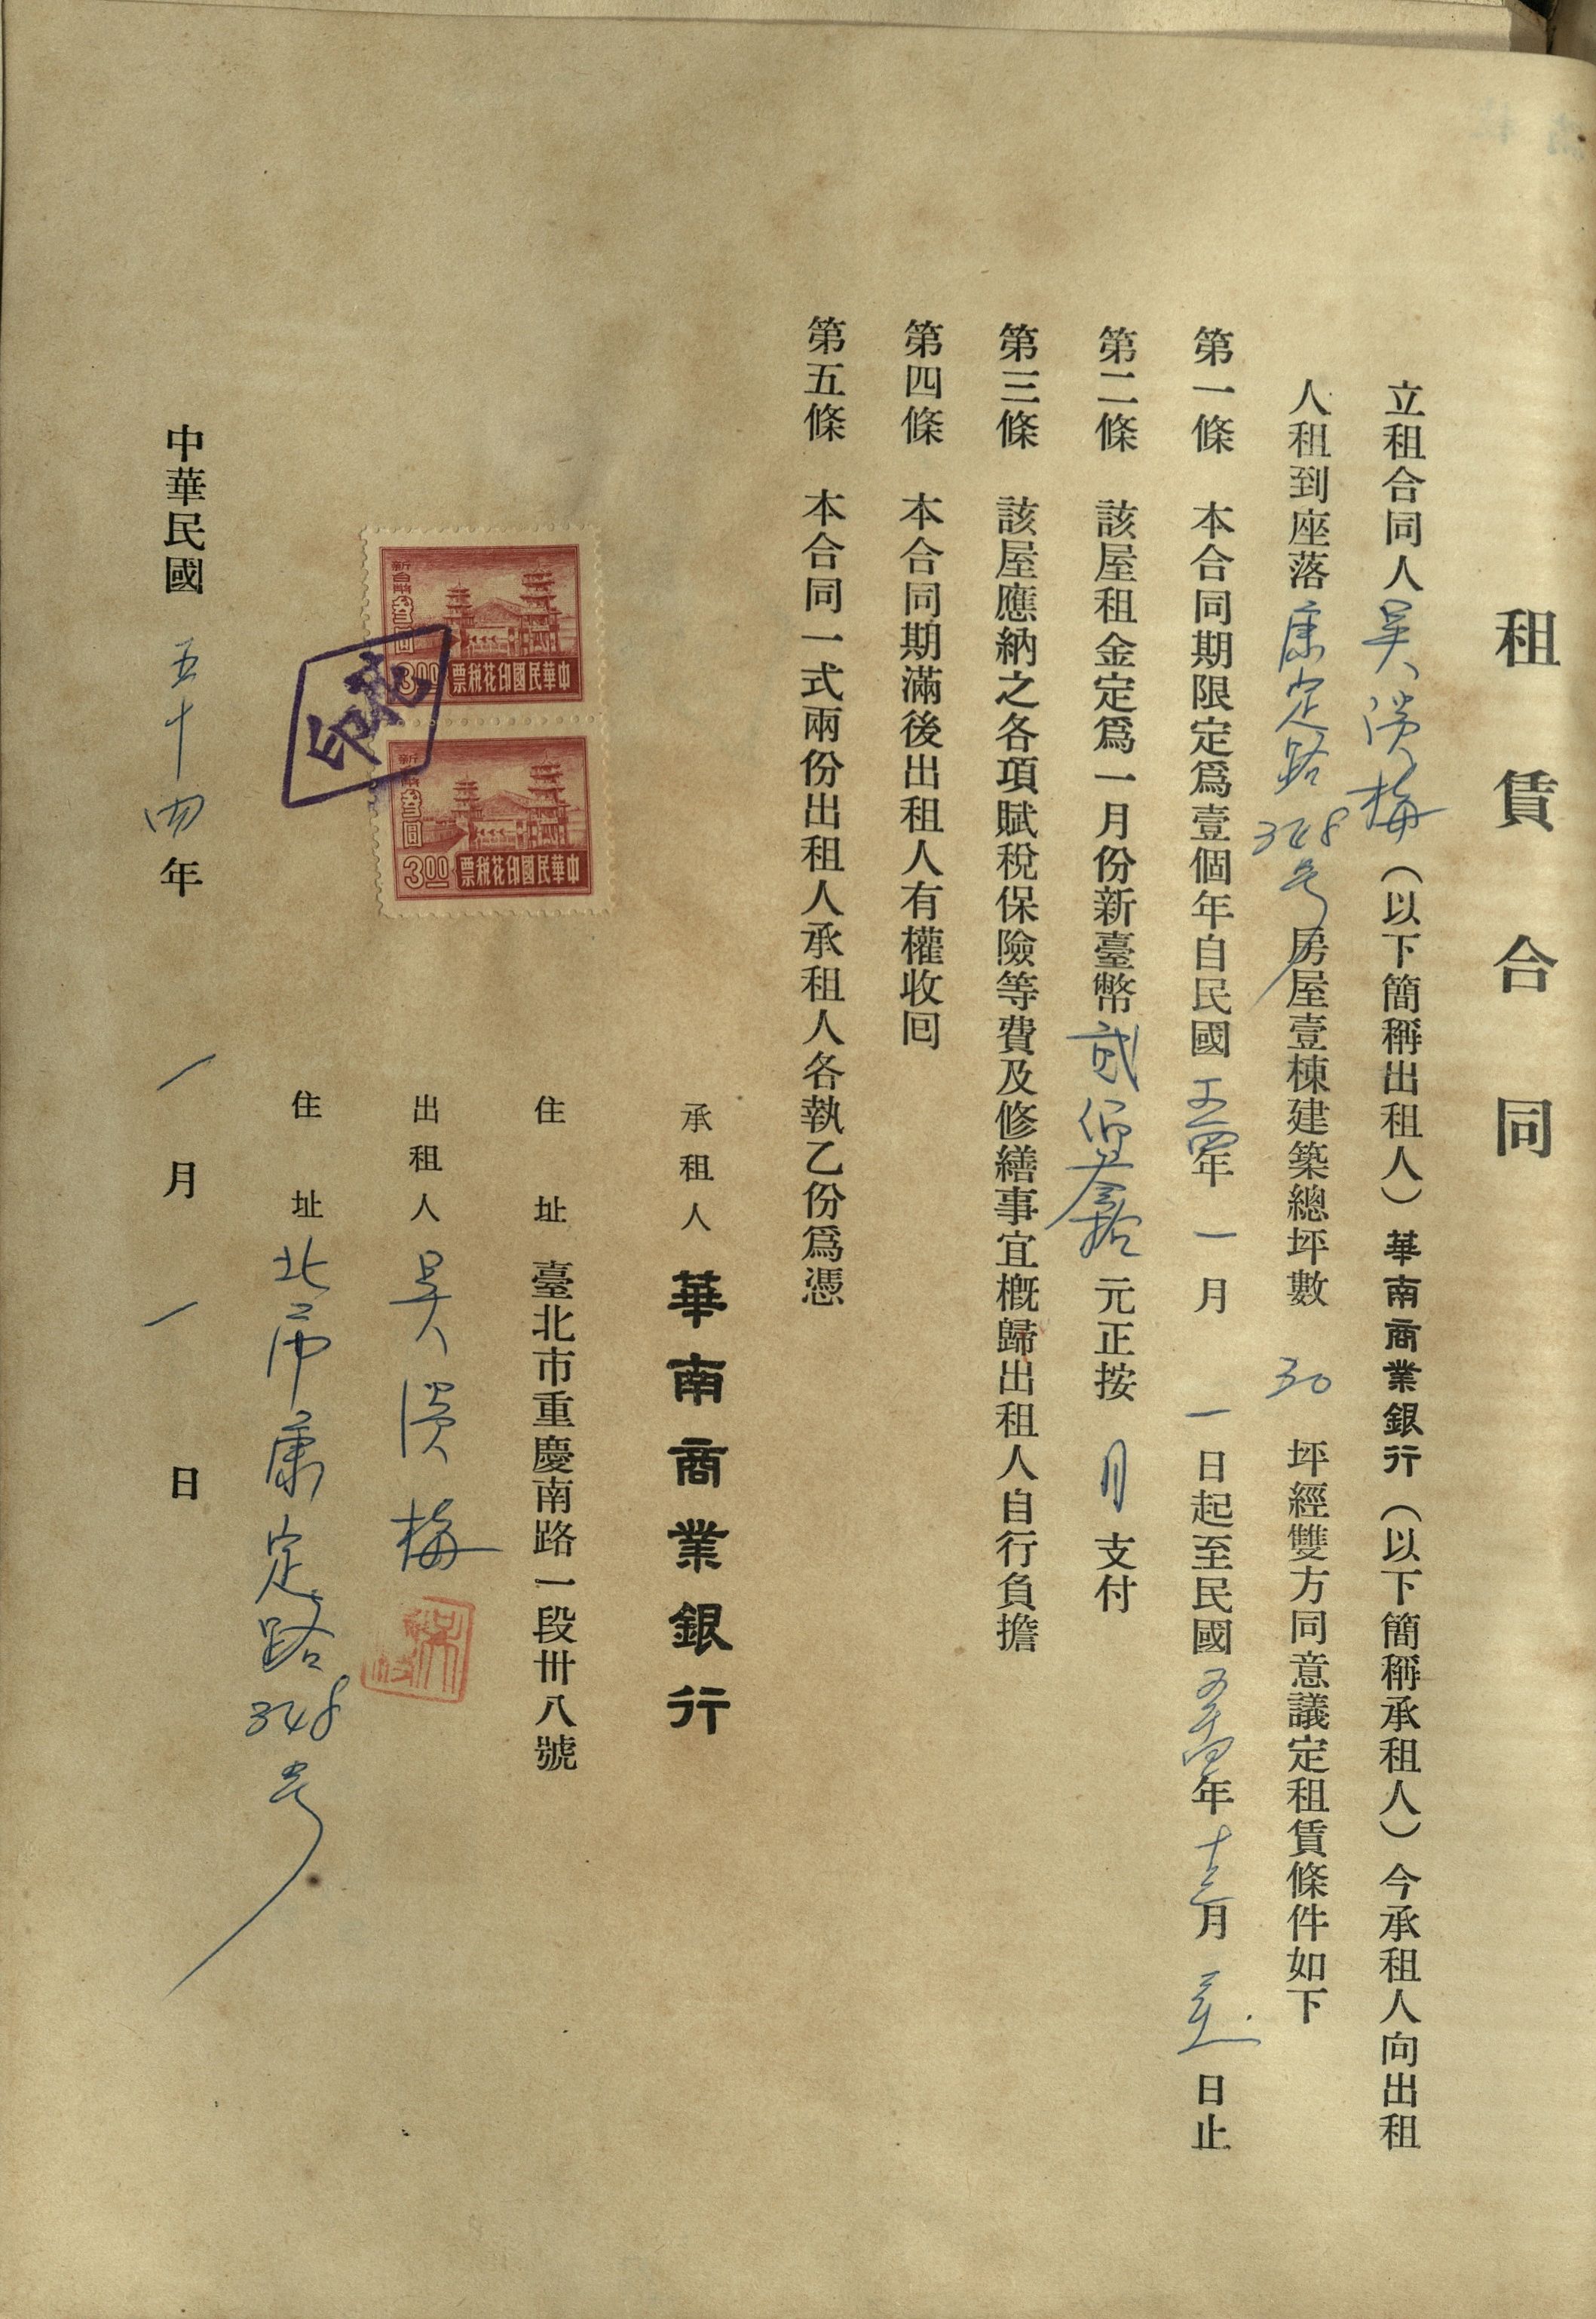 租賃合同
立租合同人吳滿梅（以下簡稱出租人）華南商業銀行（以下簡稱承租人）今承租人向出租
人租到座落康定路348号房屋壹棟建築總坪數 30 坪經雙方同意議定租賃條件如下
第一條 本合同期限定爲壹個年自民國五四年一月一日起至民國五十四年十二月 日止
第二條 該屋租金定爲一月份新臺幣貳佰叁拾元正按月支付
第三條 該屋應納之各項賦稅保險等費及修繕事宜槪歸出租人自行負擔
第四條 本合同期滿後出租人有權收囘
第五條 本合同一式兩份出租人承租人各執乙份爲憑
承租人 華南商業銀行
住址 臺北市重慶南路一段卅八號
出租人 吳滿梅
住址 北市康定路348号
中華民國五十四年一月一日
新台幣叁圓
3.00 中華民國印花稅票
新台幣叁圓
3.00 中華民國印花稅票